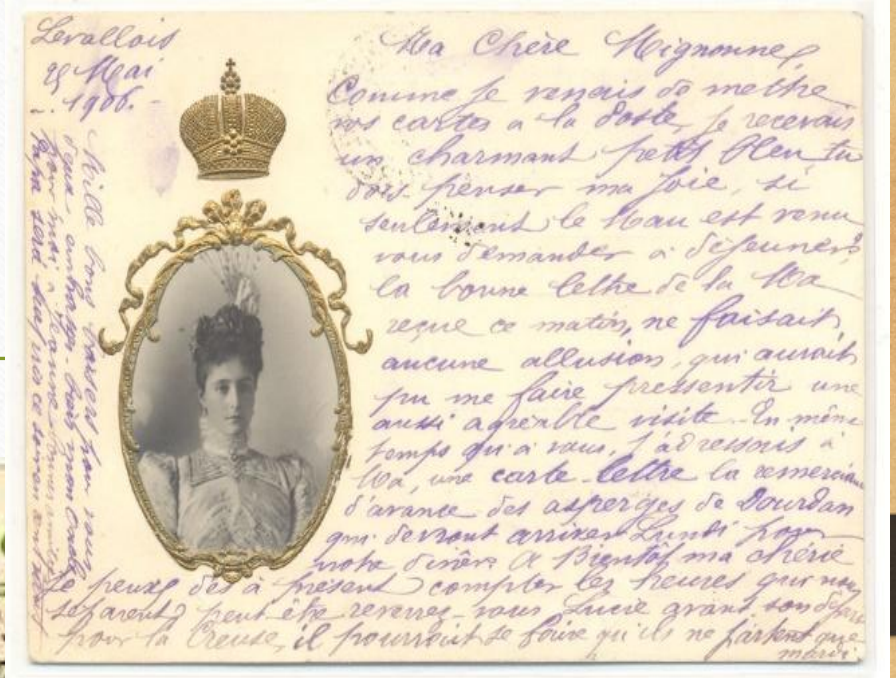 Levallois
25 Mai
1906.-
Ma Chère Mignonne,
Comme je venais de mettre
vos cartes à la Poste, je recevais
un charmant petit Bleu, tu
dois penser ma joie, si
seulement le Mau est venu
vous demander à déjeuner,
la bonne lettre de la Ma
reçue ce matin, ne faisait,
aucune allusion, qui aurait
pu me faire pressentir une
aussi agréable visite. En même
temps qu'à vous, j'adressais à
Ma, une carte-lettre la remerciant
d'avance des asperges de Dourdan
qui devront arriver Lundi pour
notre dîner. A Bientôt ma chérie
je peux dès à présent compter les heures qui nous
séparent, peut être reverrez-vous Lucie avant son départ
pour la Creuse, il pourrait se faire qu'ils ne partent que
mardi.
Mille bons baisers pour vous
deux
pour moi à Jeanne